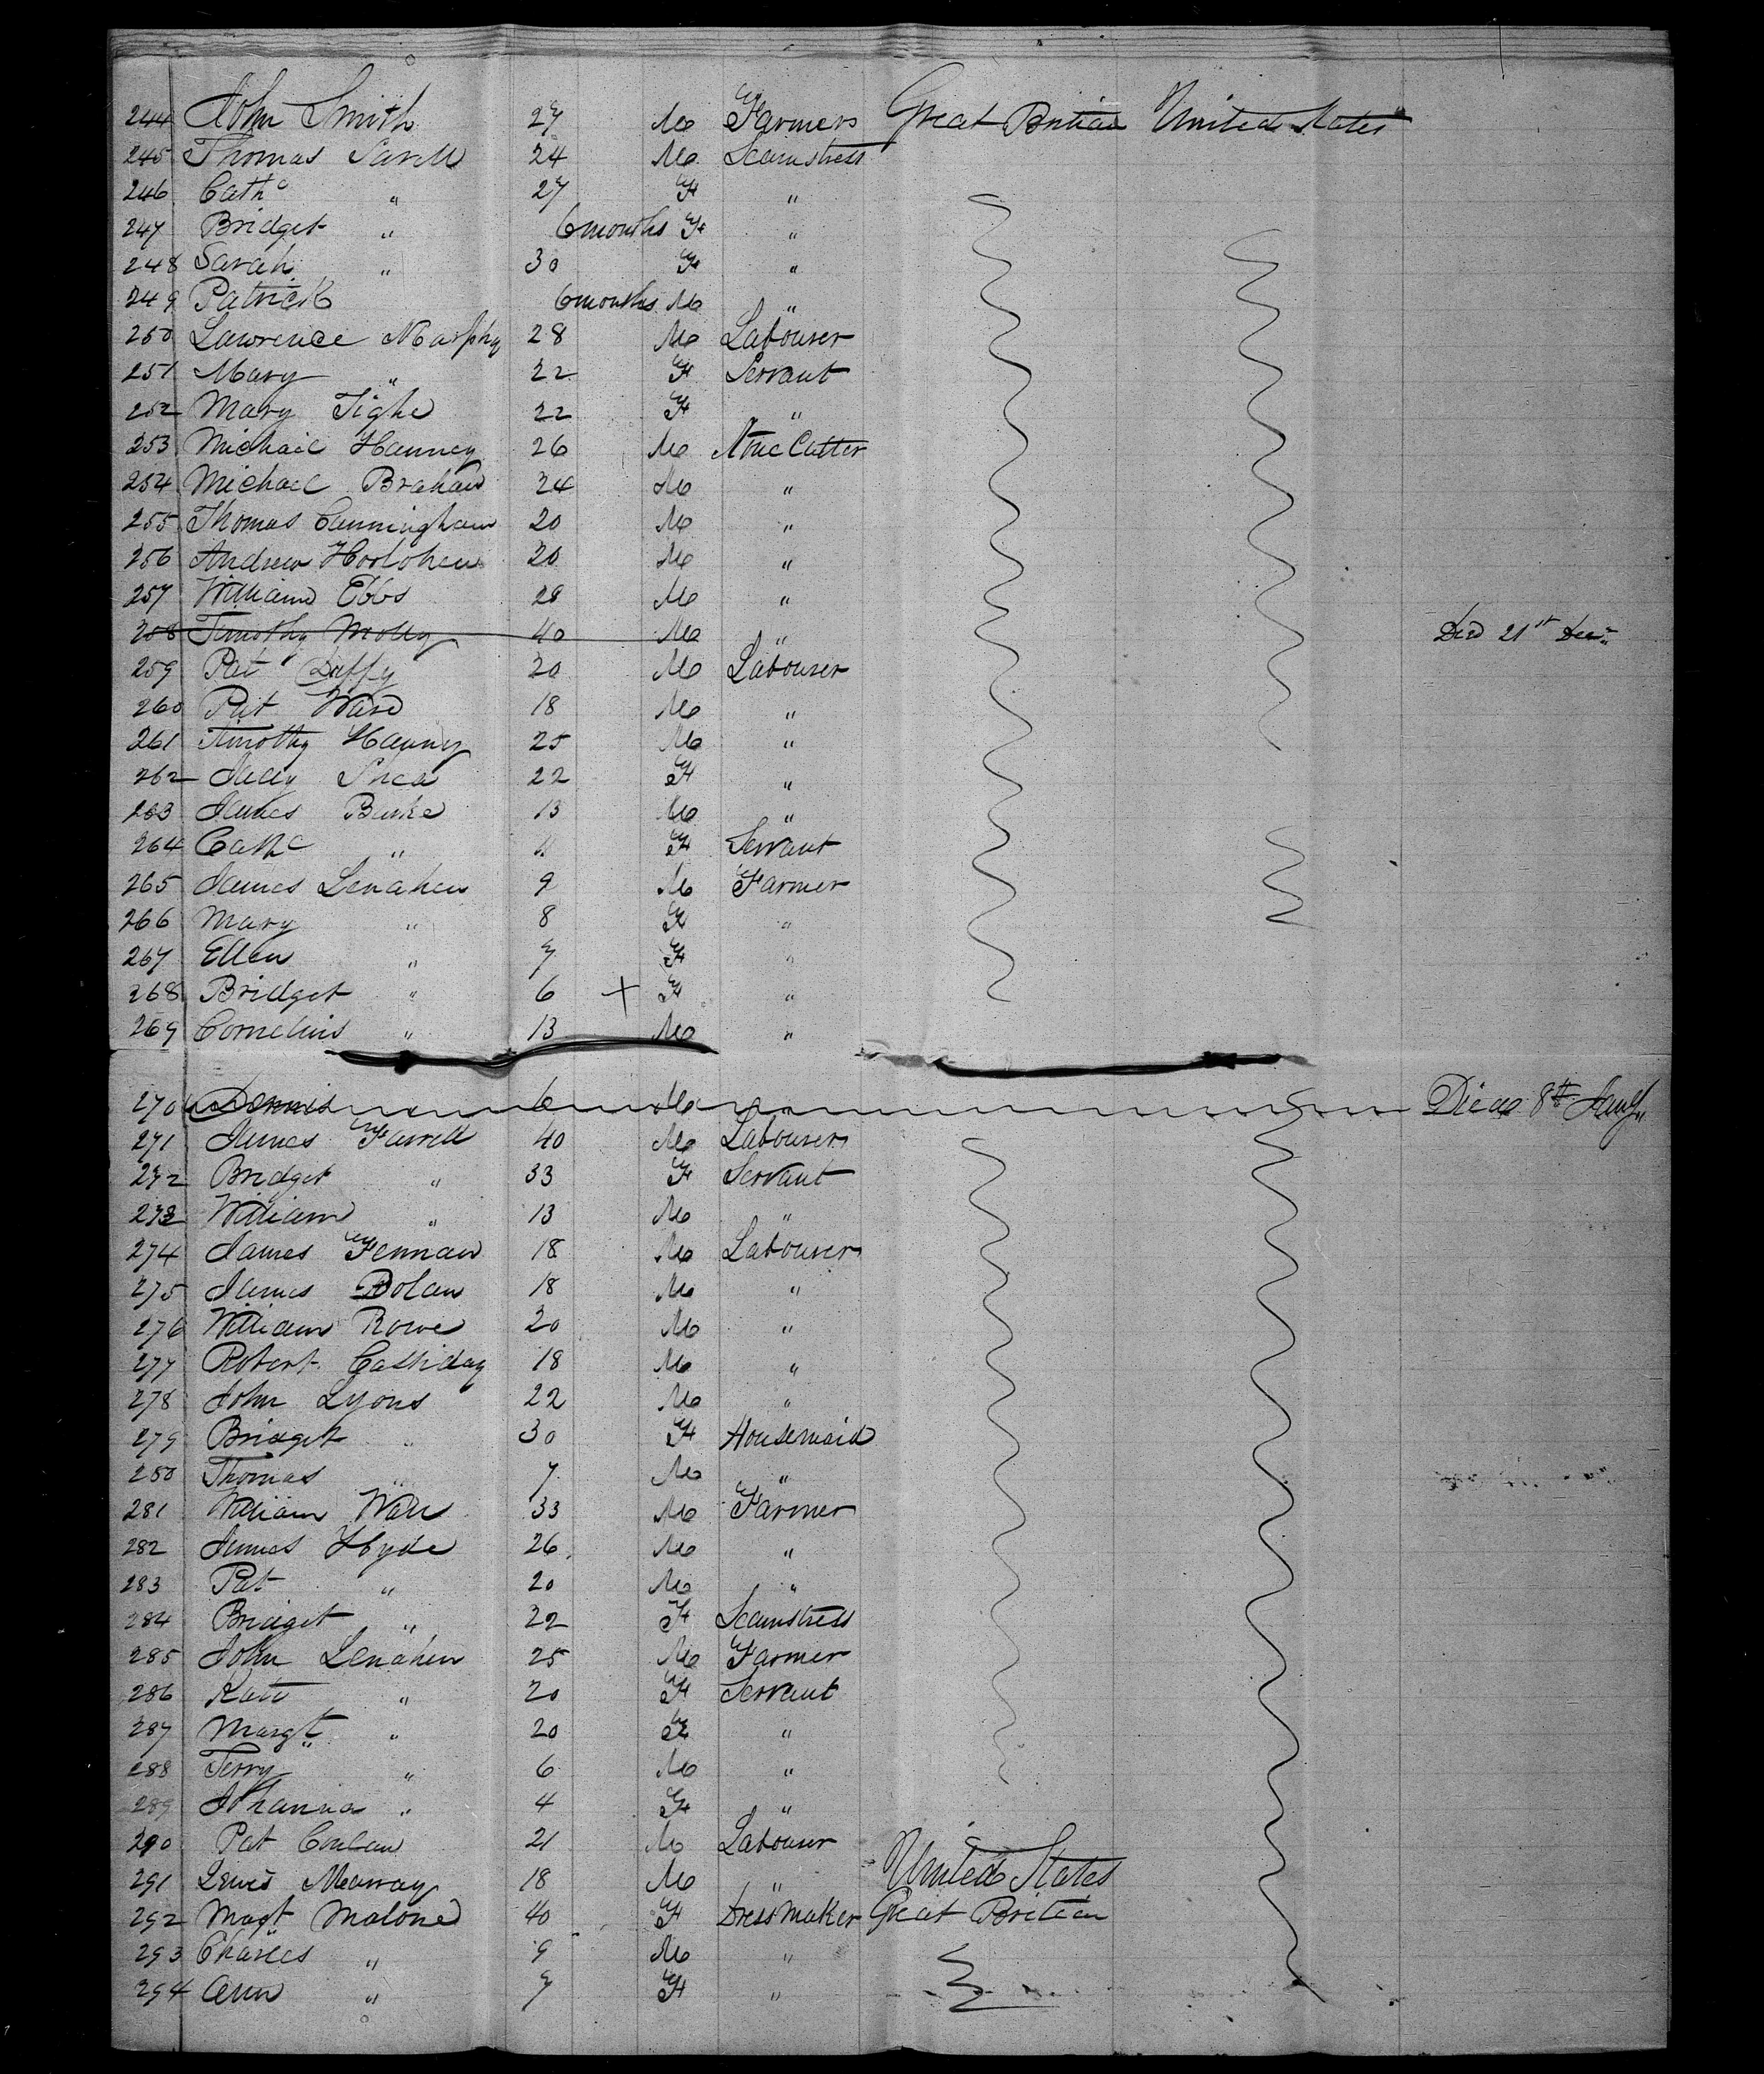 244 John Smith 27 M Farmer Great Britian United States
245 Thomas Farell 24 M Seamstress
246 Cathe " 27 F "
247 Bridget " 6 months F "
248 Sarah " 30 F "
249 Patrick 6 months M "
250 Lawrence Murphy 28 M Labourer
251 Mary " 22 F Servant
252 Mary Tighe 22 F "
253 Michail Hanney 26 M Stone Cutter
254 Michael 24 M "
255 Thomas Cunningham 20 M "
256 Andrew Hoolohen 20 M "
257 William Ebbs 28 M "
258 Timothy Molly 40 M " Died 21st Decr
259 Pat Duffy 20 M Labourer
260 Pat Ward 18 M "
261 Timothy Hanney 25 M "
262 Shea 22 F "
263 James Burke 13 M "
264 Cathe " 11 F Servant
265 James Lenahen 9 M Farmer
266 Mary " 8 F "
267 Ellen " 7 F "
268 Bridget " 6 + F "
269 Cornelius " 13 M "
270 Dennis " 6 M " Died 8th Jany
271 James Farrell 40 M Labourer
272 Bridget " 33 F Servant
273 William " 13 M "
274 James Fennan 18 M Labourer
275 James Dolan 18 M "
276 William Rowe 20 M "
277 Robert Cassiday 18 M "
278 John Lyons 22 M "
279 Bridget " 30 F Housemaid
280 Thomas " 7 M "
281 William Wall 33 M Farmer
282 James Hyde 26 M "
283 Pat " 20 M "
284 Bridget " 22 F Seamstress
285 John Lenahen 25 M Farmer
286 Kate " 20 F Servant
287 Margt " 20 F "
288 Terry " 6 M "
289 Johanna " 4 F "
290 Pat Conlan 21 M Labourer
291 Lewis 18 M " United States
292 Magt Malone 40 F Dress Maker Great Britian
293 Charles " 9 M "
294 Ann " 7 F "